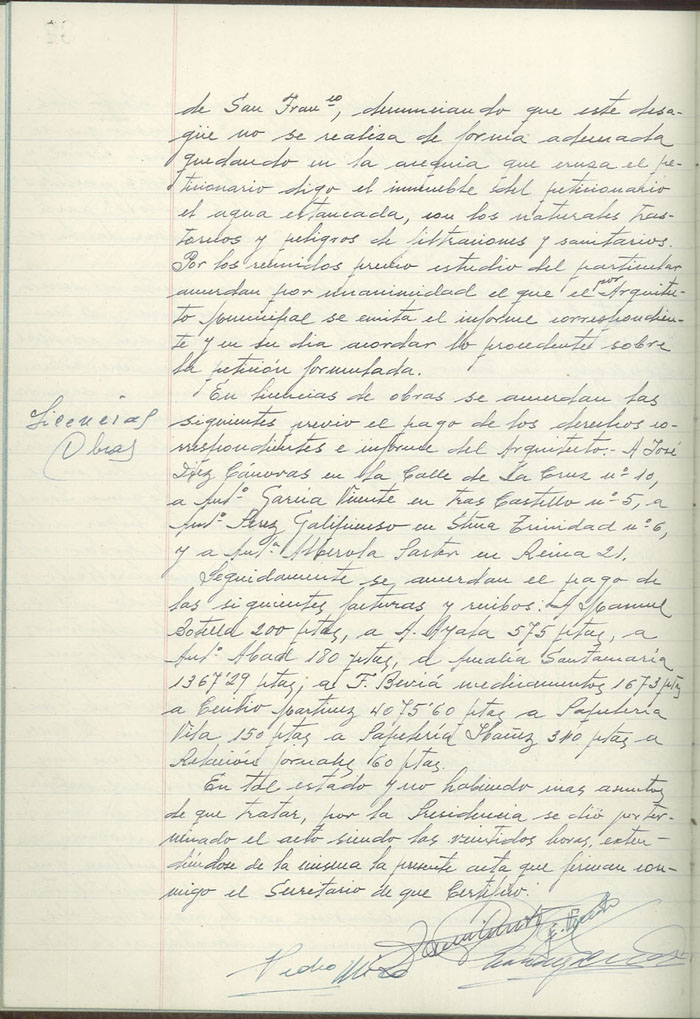 de San Franco, denunciando que este desa-
güe no se realiza de forma adecuada
quedando en la acequia que cruza el pe-
ticionario digo el inmueble del peticionario
el agua estancada, con los naturales tras-
tornos y peligros de filtraciones y sanitarios.
Por los reunidos previo estudio del particular
acuerdan por unanimidad el que el por Arquitec-
to Municipal se emita el informe correspondien-
te y en su dia acordar lo procedente sobre
la petición formulada.
Licencias
Obras
En licencias de obras se acuerdan las
siguientes previo el pago de los derechos co-
rrespondientes e informe del Arquitecto:- A José
Díez Cánovas en la Calle de La Cruz nº 10,
a Antº García Vicente en tras Castillo nº 5, a
Antº Perez Galipienso en Stma Trinidad nº 6,
y a Antª Alberola Pastor en Reina 21.
Seguidamente se acuerdan el pago de
las siguientes facturas y recibos: A Manuel
Botella 200 ptas, a A. Ayala 575 ptas, a
Antº Abad 180 ptas, a Amalia Santamaría
1367'29 ptas; a F. Beviá medicamentos 1673 ptas
a Martinez 4075'60 ptas a Papeleria
Vila 150 ptas a Papeleria Ibañez 340 ptas a
Relación jornales 60 ptas.
En tal estado y no habiendo mas asuntos
de que tratar, por la Presidencia se dió por ter-
minado el acto siendo las veintidos horas, exten-
diéndose de la misma la presente acta que firman con-
migo el Secretario de que Certifico.
Pedro